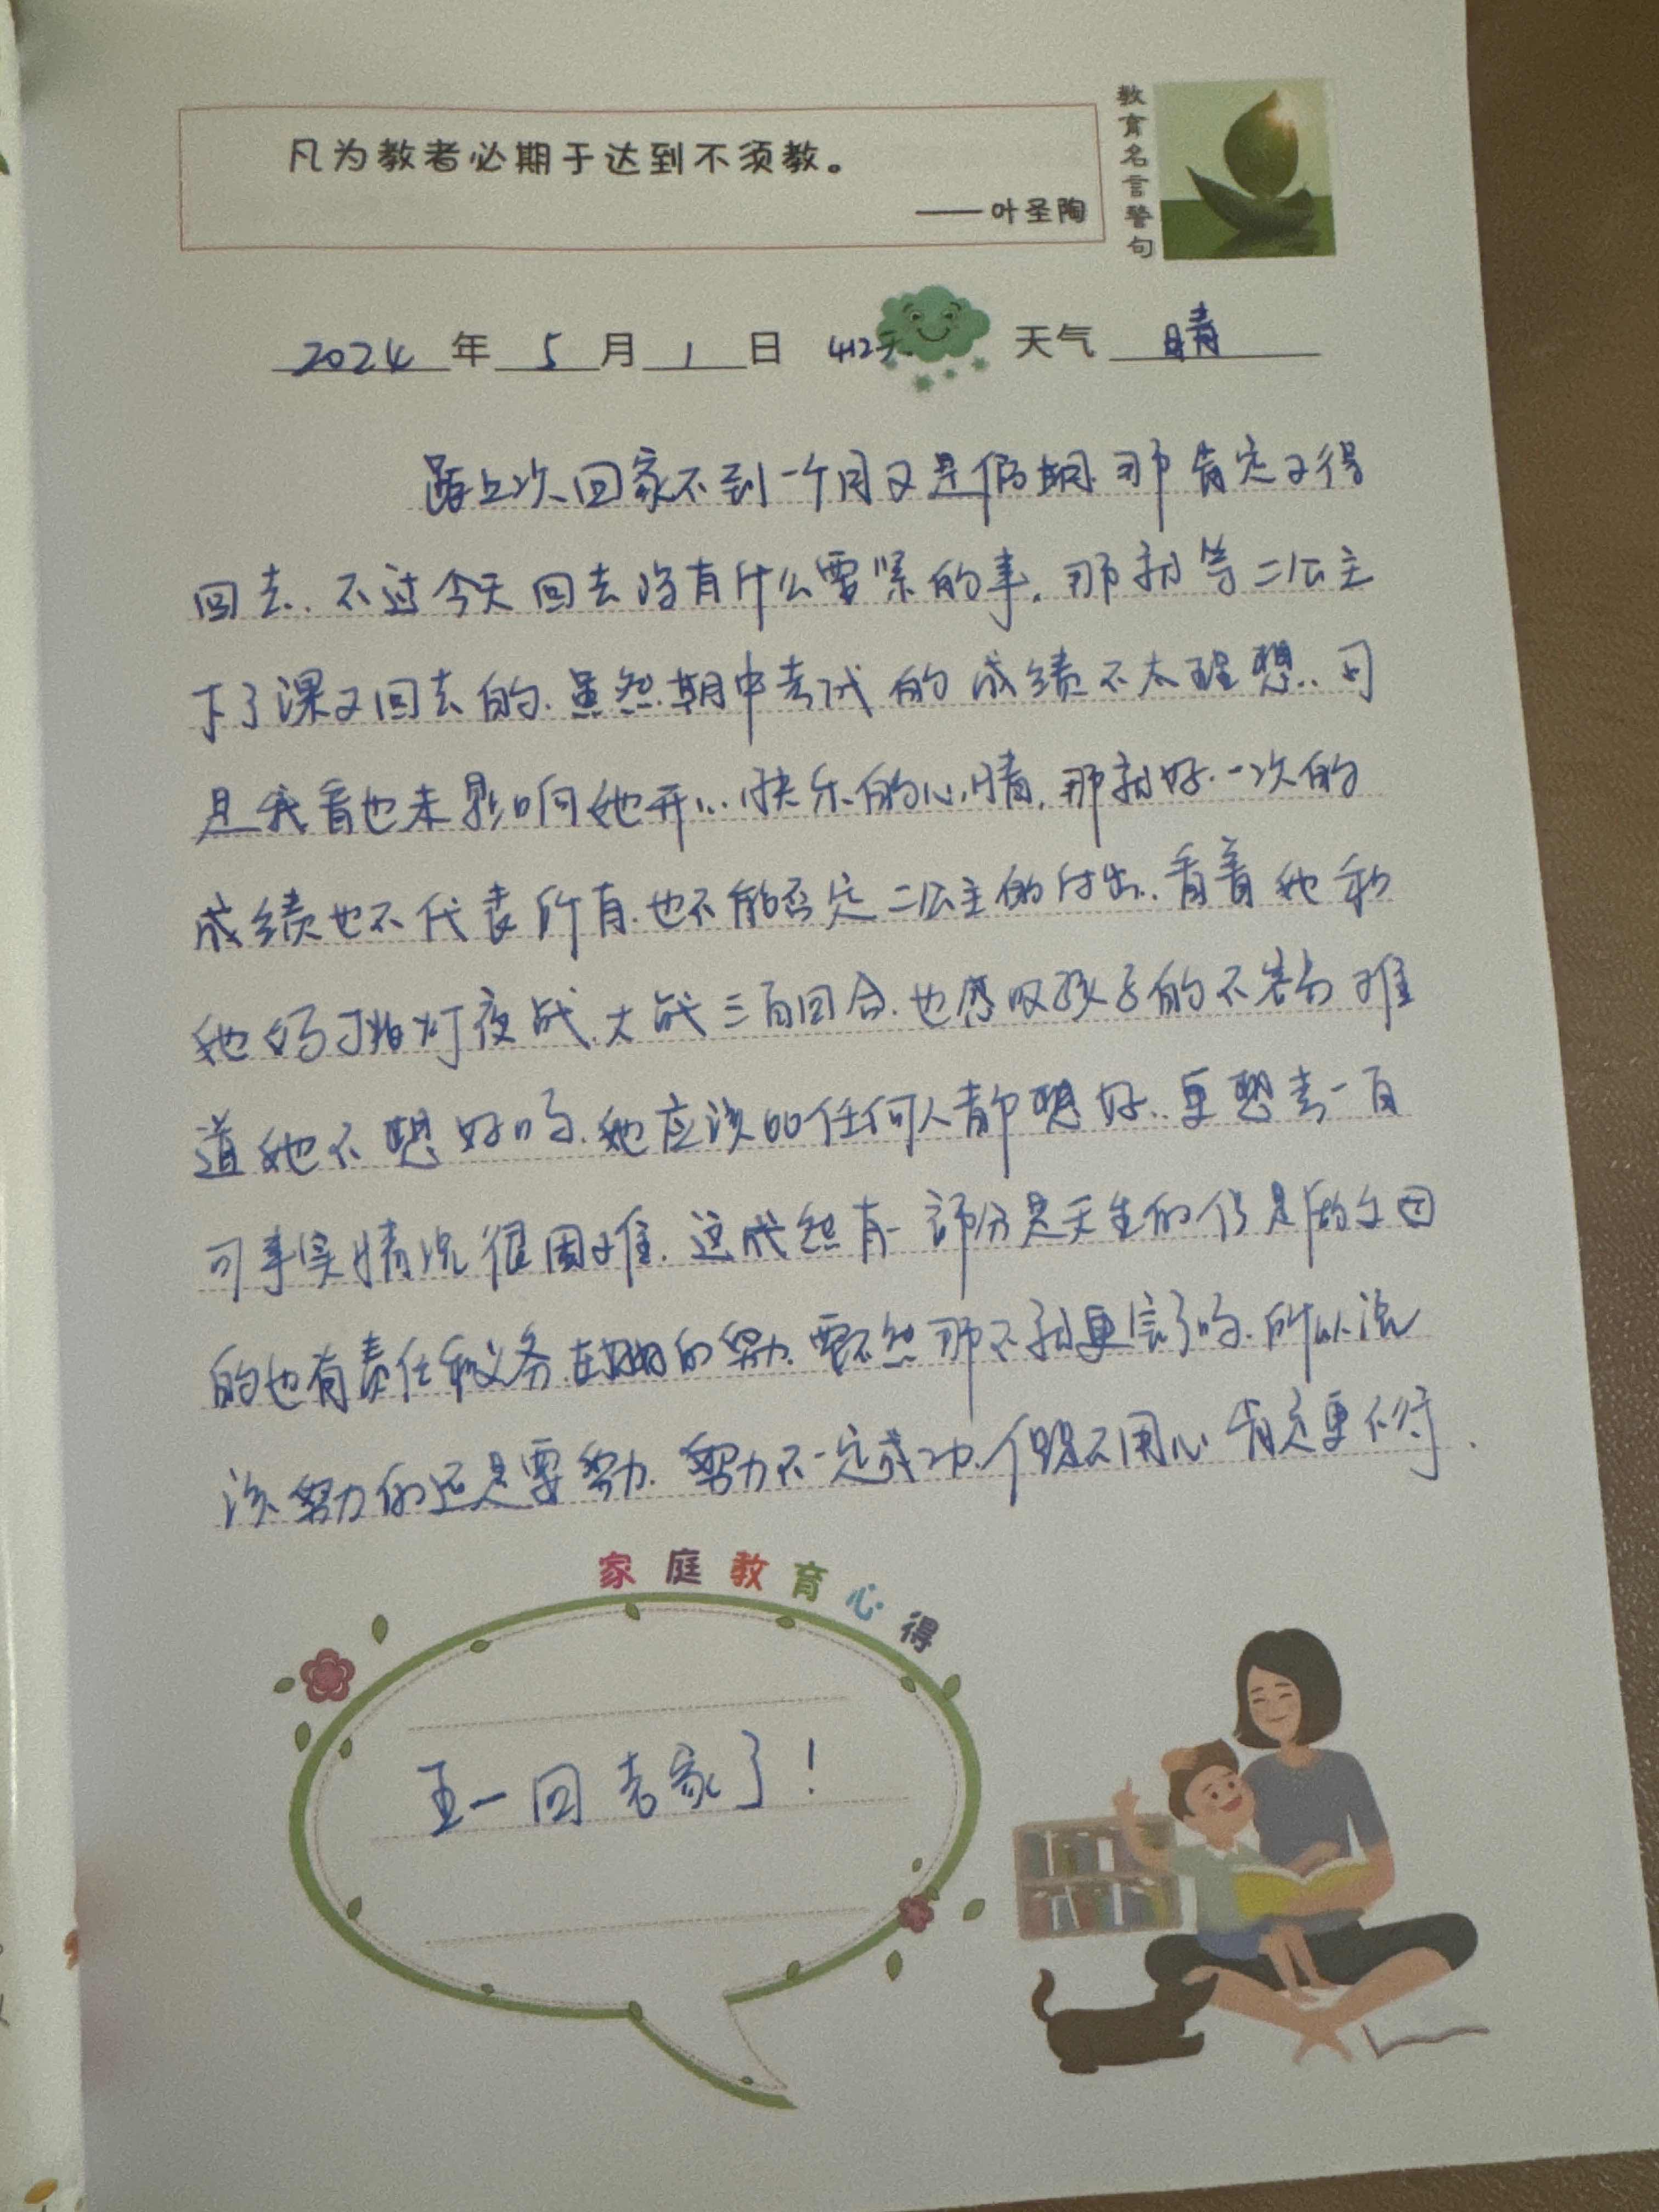 凡为教者必期于达到不须教。
——叶圣陶
教育名言警句
2024年5月1日 412天 天气 晴
距上次回家不到一个月又是假期.那肯定又得
回去.不过今天回去没有什么要紧的事.那就等二公主
下了课又回去的.虽然期中考试的成绩不太理想..可
是我看也未影响她开心.快乐的心情.那就好.一次的
成绩也不代表所有.也不能否定二公主的付出..看着她和
她妈挑灯夜战.大战三百回合.也感叹孩子的不容易 难
道她不想好吗.她应该比任何人都想好..更想考一百
可事实情况很困难.这虽然有一部分是天生的 但是
的也有责任和义务.的努力.要不然那不就更完了吗.所以说
该努力的还是要努力.努力不一定成功.但是不用心 肯定更不行.
家庭教育心得
五一回老家了!